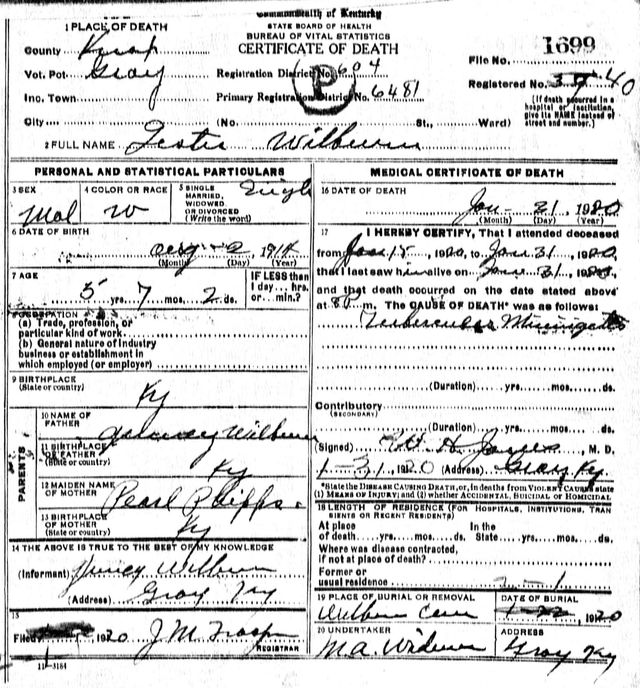 Commonwealth of Kentucky
STATE BOARD OF HEALTH
BUREAU OF VITAL STATISTICS
CERTIFICATE OF DEATH
1 PLACE OF DEATH
County Knox
Vot. Pct. Gray
Inc. Town
City (No. St., Ward)
Registration District No. 604
Primary Registration District No. 6481
P
File No. 1699
Registered No. 40
(If death occurred in a hospital or institution, give its NAME instead of street and number.)
2 FULL NAME Wilburn
PERSONAL AND STATISTICAL PARTICULARS
3 SEX
Mal
4 COLOR OR RACE
W
5 SINGLE, MARRIED, WIDOWED OR DIVORCED (Write the word)
Single
6 DATE OF BIRTH
2 1914
(Month) (Day) (Year)
7 AGE
5 yrs. 7 mos. 2 ds.
IF LESS than 1 day... hrs. or... min.?
OCCUPATION
(a) Trade, profession, or particular kind of work
(b) General nature of industry business or establishment in which employed (or employer)
9 BIRTHPLACE
(State or country)
Ky
PARENTS
10 NAME OF FATHER
Wilburn
11 BIRTHPLACE OF FATHER
(State or country)
Ky
12 MAIDEN NAME OF MOTHER
Pearl Phipps
13 BIRTHPLACE OF MOTHER
(State or country)
Ky
14 THE ABOVE IS TRUE TO THE BEST OF MY KNOWLEDGE
(Informant) Wilburn
(Address) Gray Ky
15
Filed 1920 J M
REGISTRAR
11-3184
MEDICAL CERTIFICATE OF DEATH
16 DATE OF DEATH
Jan - 31, 1920
(Month) (Day) (Year)
17 I HEREBY CERTIFY, That I attended deceased
from Jan 15, 1920, to Jan 31, 1920,
that I last saw him alive on Jan 31, 1920,
and that death occurred on the date stated above
at 8 P m. The CAUSE OF DEATH* was as follows:
Tubercular Miningatis
(Duration) yrs. mos. ds.
Contributory
(SECONDARY)
(Duration) yrs. mos. ds.
(Signed) H. Jones, M. D.
1-31, 1920 (Address) Gray Ky.
*State the DISEASE CAUSING DEATH, or, in deaths from VIOLENT CAUSES state
(1) MEANS OF INJURY; and (2) whether ACCIDENTAL, SUICIDAL or HOMICIDAL
18 LENGTH OF RESIDENCE (FOR HOSPITALS, INSTITUTIONS, TRANSIENTS OR RECENT RESIDENTS)
At place of death yrs. mos. ds. In the State yrs. mos. ds.
Where was disease contracted,
if not at place of death?
Former or
usual residence
2-1
19 PLACE OF BURIAL OR REMOVAL
Wilburn Cem
DATE OF BURIAL
1920
20 UNDERTAKER
M.A.
ADDRESS
Gray Ky